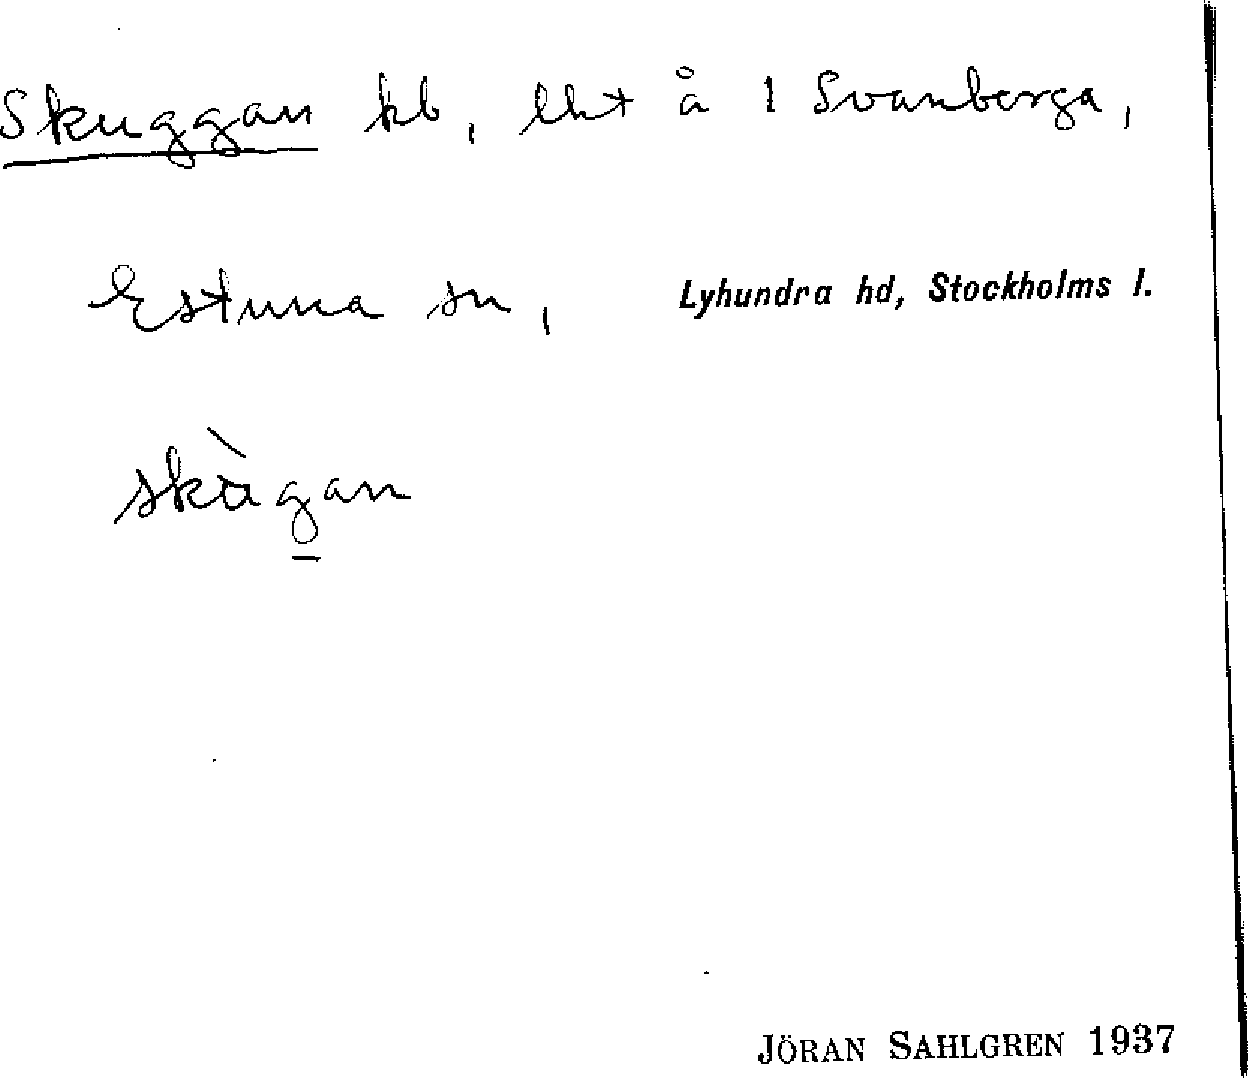 Skuggan kb, lht å 1 Svanberga,
Estuna sn, Lyhundra hd, Stockholms l.
skàgan
JÖRAN SAHLGREN 1937